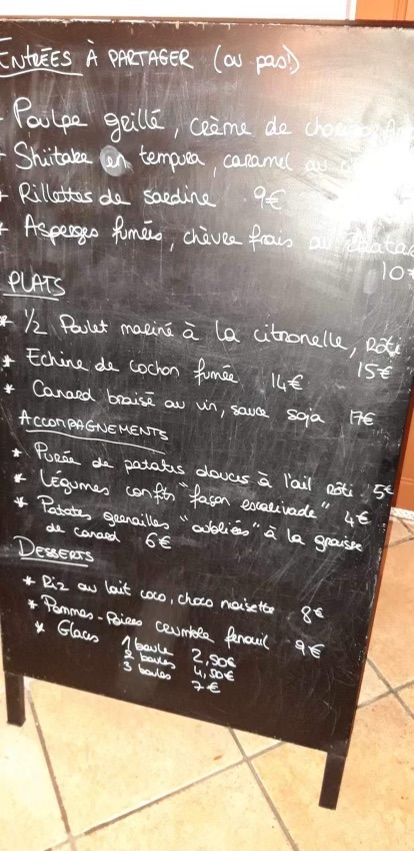 ENTRÉES À PARTAGER (ou pas!)
- Poulpe grillé, crème de
+ Shiitake en tempura, caramel au
+ Rillettes de sardine 9€
+ Asperges fumées, chèvre frais au
10
PLATS
* 1/2 Poulet mariné à la citronelle, rôti
15€
* Echine de cochon fumée 14€
* Canard braisé au vin, sauce soja 17€
ACCOMPAGNEMENTS
* Purée de patates douces à l'ail rôti. 5€
* Légumes confits "façon escalivade" 4€
* Patates grenailles "oubliées" à la graisse
de canard 6€
DESSERTS
* Riz au lait coco, choco noisette 8€
* Pommes-Poires crumble fenouil 9€
* Glaces
1 boule 2,50€
2 boules 4,50€
3 boules 7€